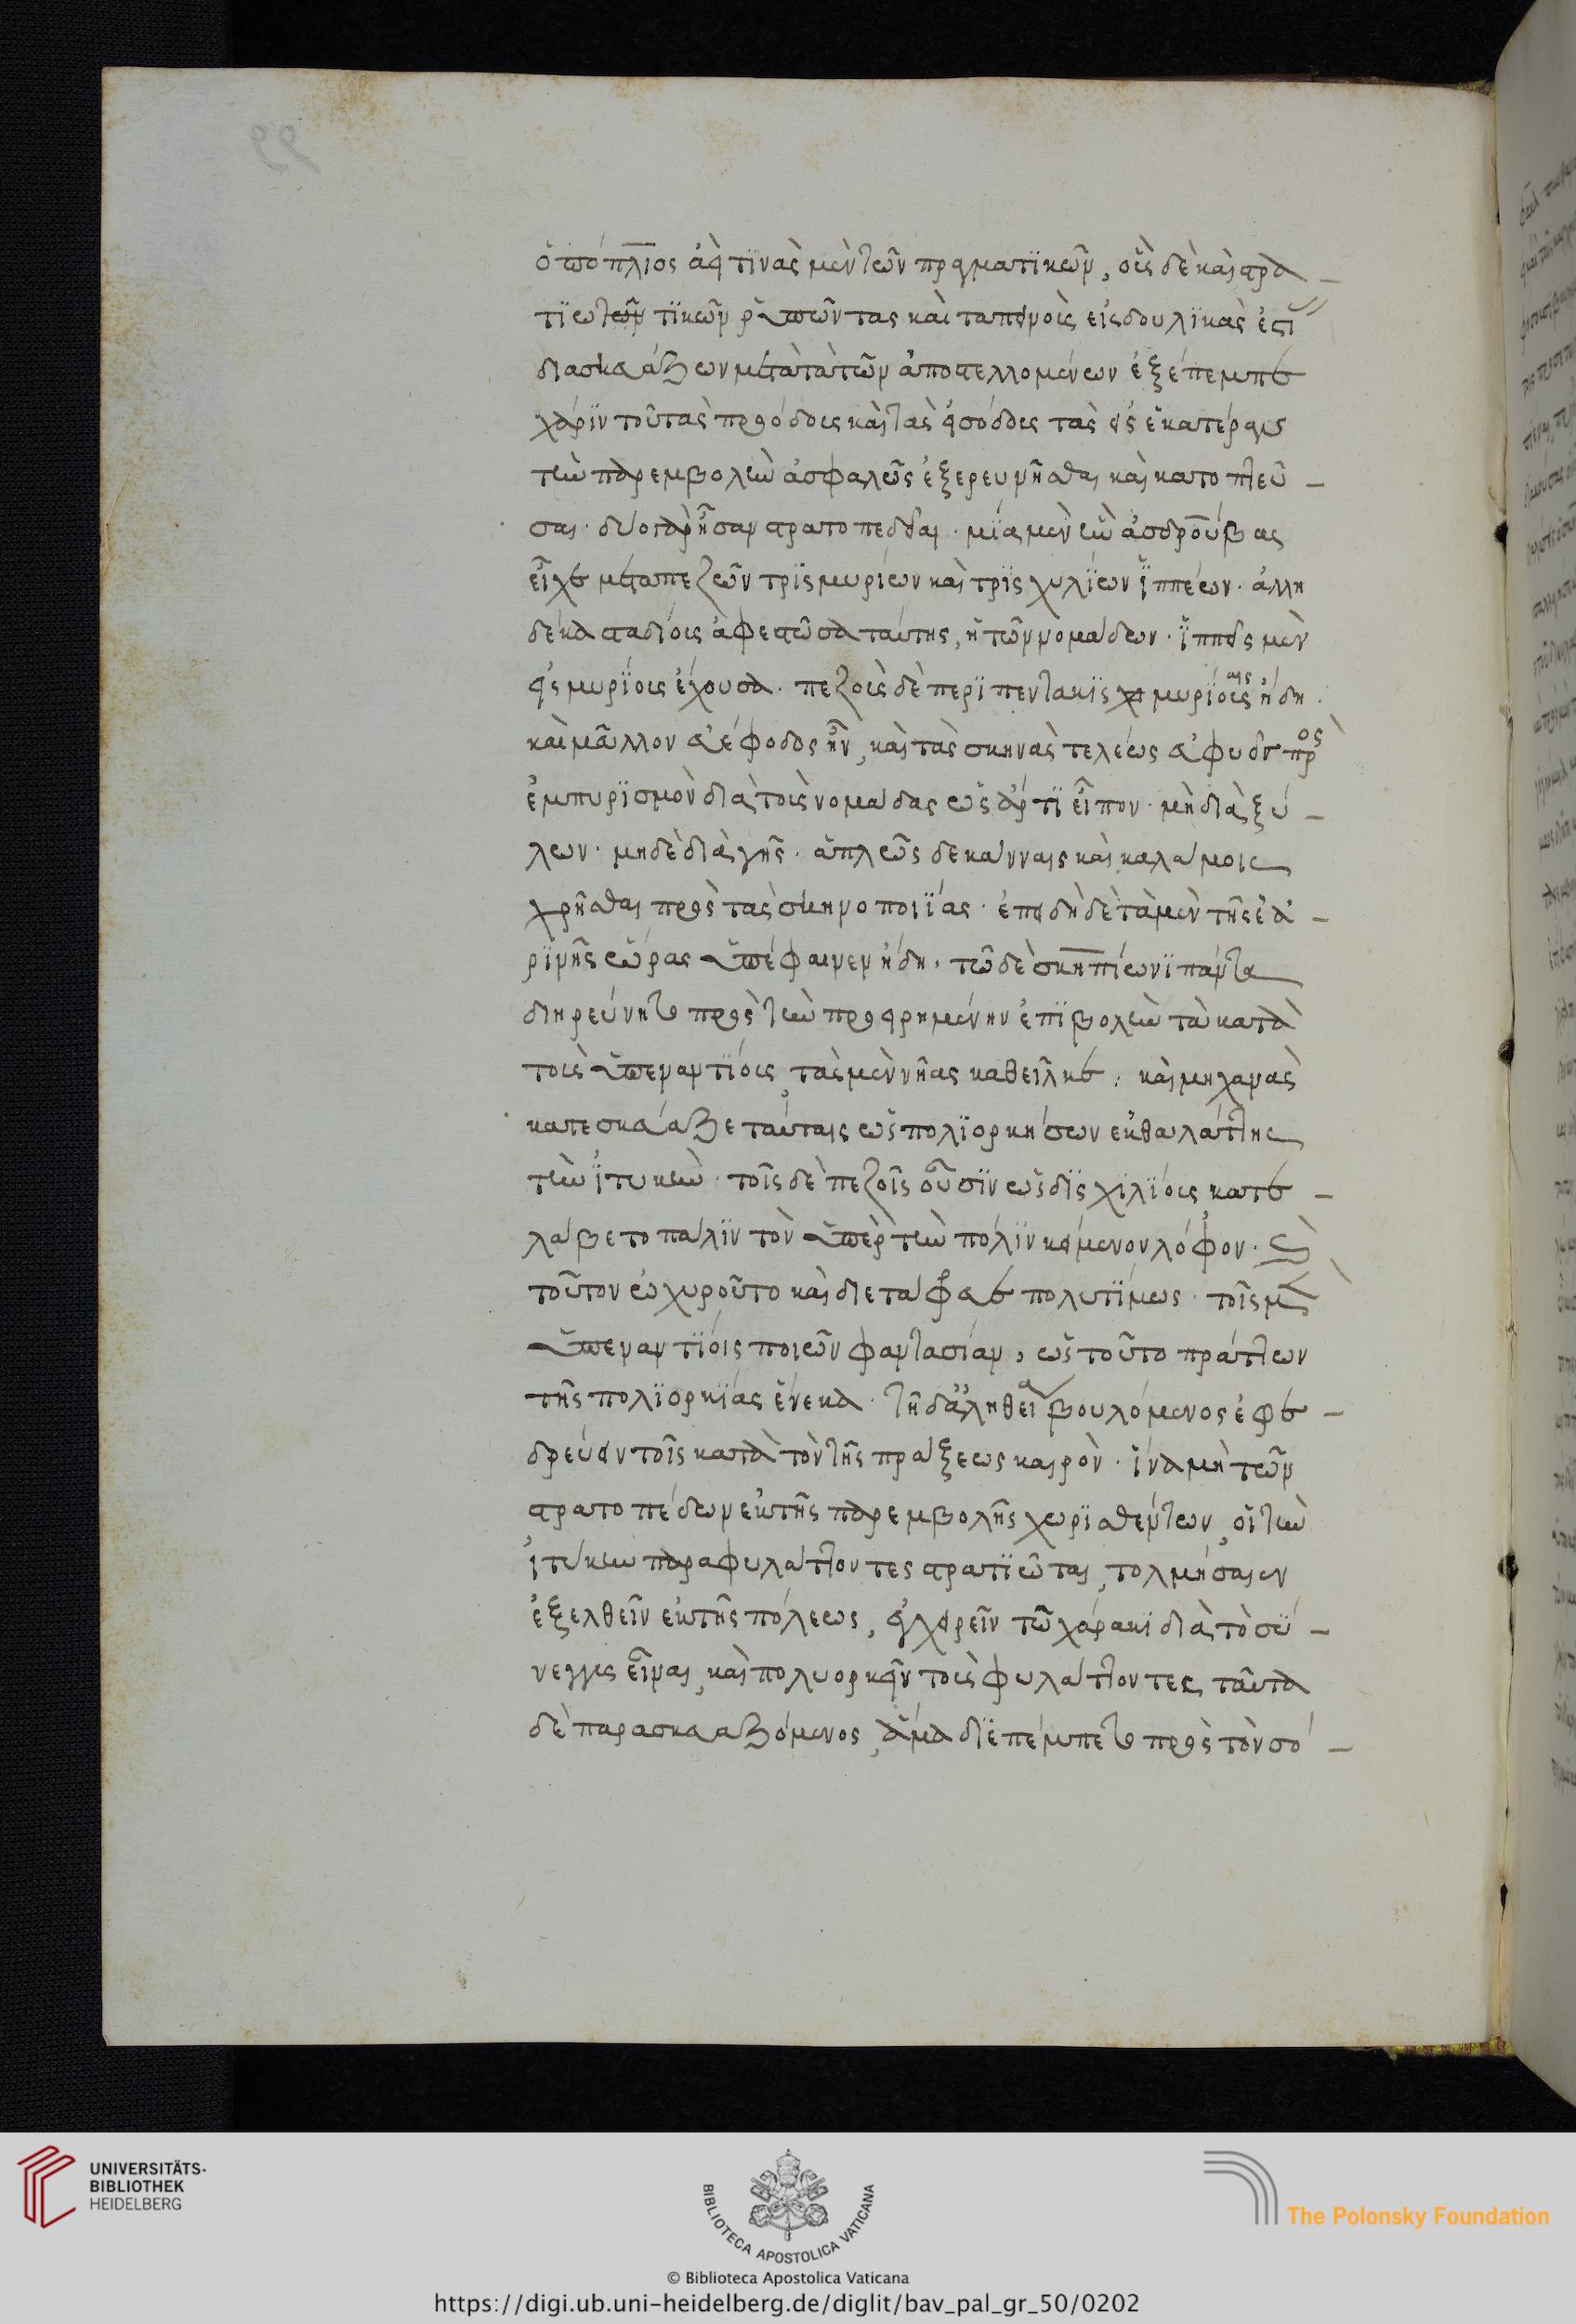 ὁ πόπλιος ἀεί τινὰς μὲν τῶν πραγματικῶν, οὓς δὲ καὶ στρα-
τιωτῶν τικῶν ῥυπῶντας καὶ ταπεινοὺς εἰς δουλικὰς ἐστι
διασκευάζων μετὰ τὰ τῶν ἀποστελλομένων ἐξέπεμπε
χάριν τοῦ τὰς προόδους καὶ τὰς εἰσόδους τὰς εἰς ἑκατέρας
τὴν παρεμβολὴν ἀσφαλῶς ἐξερευνῆσθαι καὶ κατοπτεῦ-
σαι. δύο γὰρ ἦσαν στρατοπεδεῖαι. μία μὲν ἣν ἀσδρούβας
εἶχε μετὰ πεζῶν τρὶς μυρίων καὶ τρὶς χιλίων ἱππέων. ἄλλη
δέκα σταδίους ἀφεστῶσα ταύτης, ἡ τῶν νομάδων. ἱππεῖς μὲν
εἰς μυρίους ἔχουσα. πεζοὺς δὲ περὶ πεντακὶς μυρίους ἤδη.
καὶ μᾶλλον εὐέφοδος ἦν, καὶ τὰς σκηνὰς τελέως εὐφυεῖς πρὸς
ἐμπυρισμὸν διὰ τοὺς νομάδας ὡς ἄρτι εἶπον. μὴ διὰ ξύ-
λων. μηδὲ διὰ γῆς. ἁπλῶς δε κάνναις καὶ καλάμοις
χρῆσθαι πρὸς τὰς σκηνοποιίας. ἐπειδὴ δὲ τὰ μὲν τῆς ἐα-
ρινῆς ὥρας ὑπέφαινεν ἤδη. τῶ δὲ σκηπίωνι πάντα
διηρεύνητο πρὸς τὴν προειρημένην ἐπιβολὴν τὰ κατὰ
τοὺς ὑπεναντίους, τὰς μὲν νῆας καθεῖλκε. καὶ μηχανὰς
κατεσκεύαζε ταύταις ὡς πολιορκήσων ἐκ θαλάττης
τὴν ἰτύκην. τοῖς δὲ πεζοῖς οὖσιν ὡς δὶς χιλίοις κατε-
λάβετο πάλιν τὸν ὑπὲρ τὴν πόλιν κείμενον λόφον. καὶ
τοῦτον ὠχυροῦτο καὶ διετάφρευε πολυτίμως. τοῖς μὲν
ὑπεναντίοις ποιῶν φαντασίαν, ὡς τοῦτο πράττων
τῆς πολιορκίας ἕνεκα. τῆ δ' ἀληθεία βουλόμενος ἐφε-
δρεύειν τοῖς κατὰ τὸν τῆς πράξεως καιρὸν. ἵνα μὴ τῶν
στρατοπέδων ἐκ τῆς παρεμβολῆς χωρισθέντων, οἱ τὴν
ἰτύκην παραφυλάττοντες στρατιῶται, τολμήσαιεν
ἐξελθεῖν ἐκ τῆς πόλεως, ἐγχειρεῖν τῶ χάρακι διὰ τὸ σύ-
νεγγυς εἶναι, καὶ πολυορκεῖν τοὺς φυλάττοντες, ταῦτα
δὲ παρασκευαζόμενος, ἅμα διεπέμπετο πρὸς τὸν σό-
UNIVERSITÄTS-
BIBLIOTHEK
HEIDELBERG
BIBLIOTECA APOSTOLICA VATICANA
The Polonsky Foundation
© Biblioteca Apostolica Vaticana
https://digi.ub.uni-heidelberg.de/diglit/bav_pal_gr_50/0202